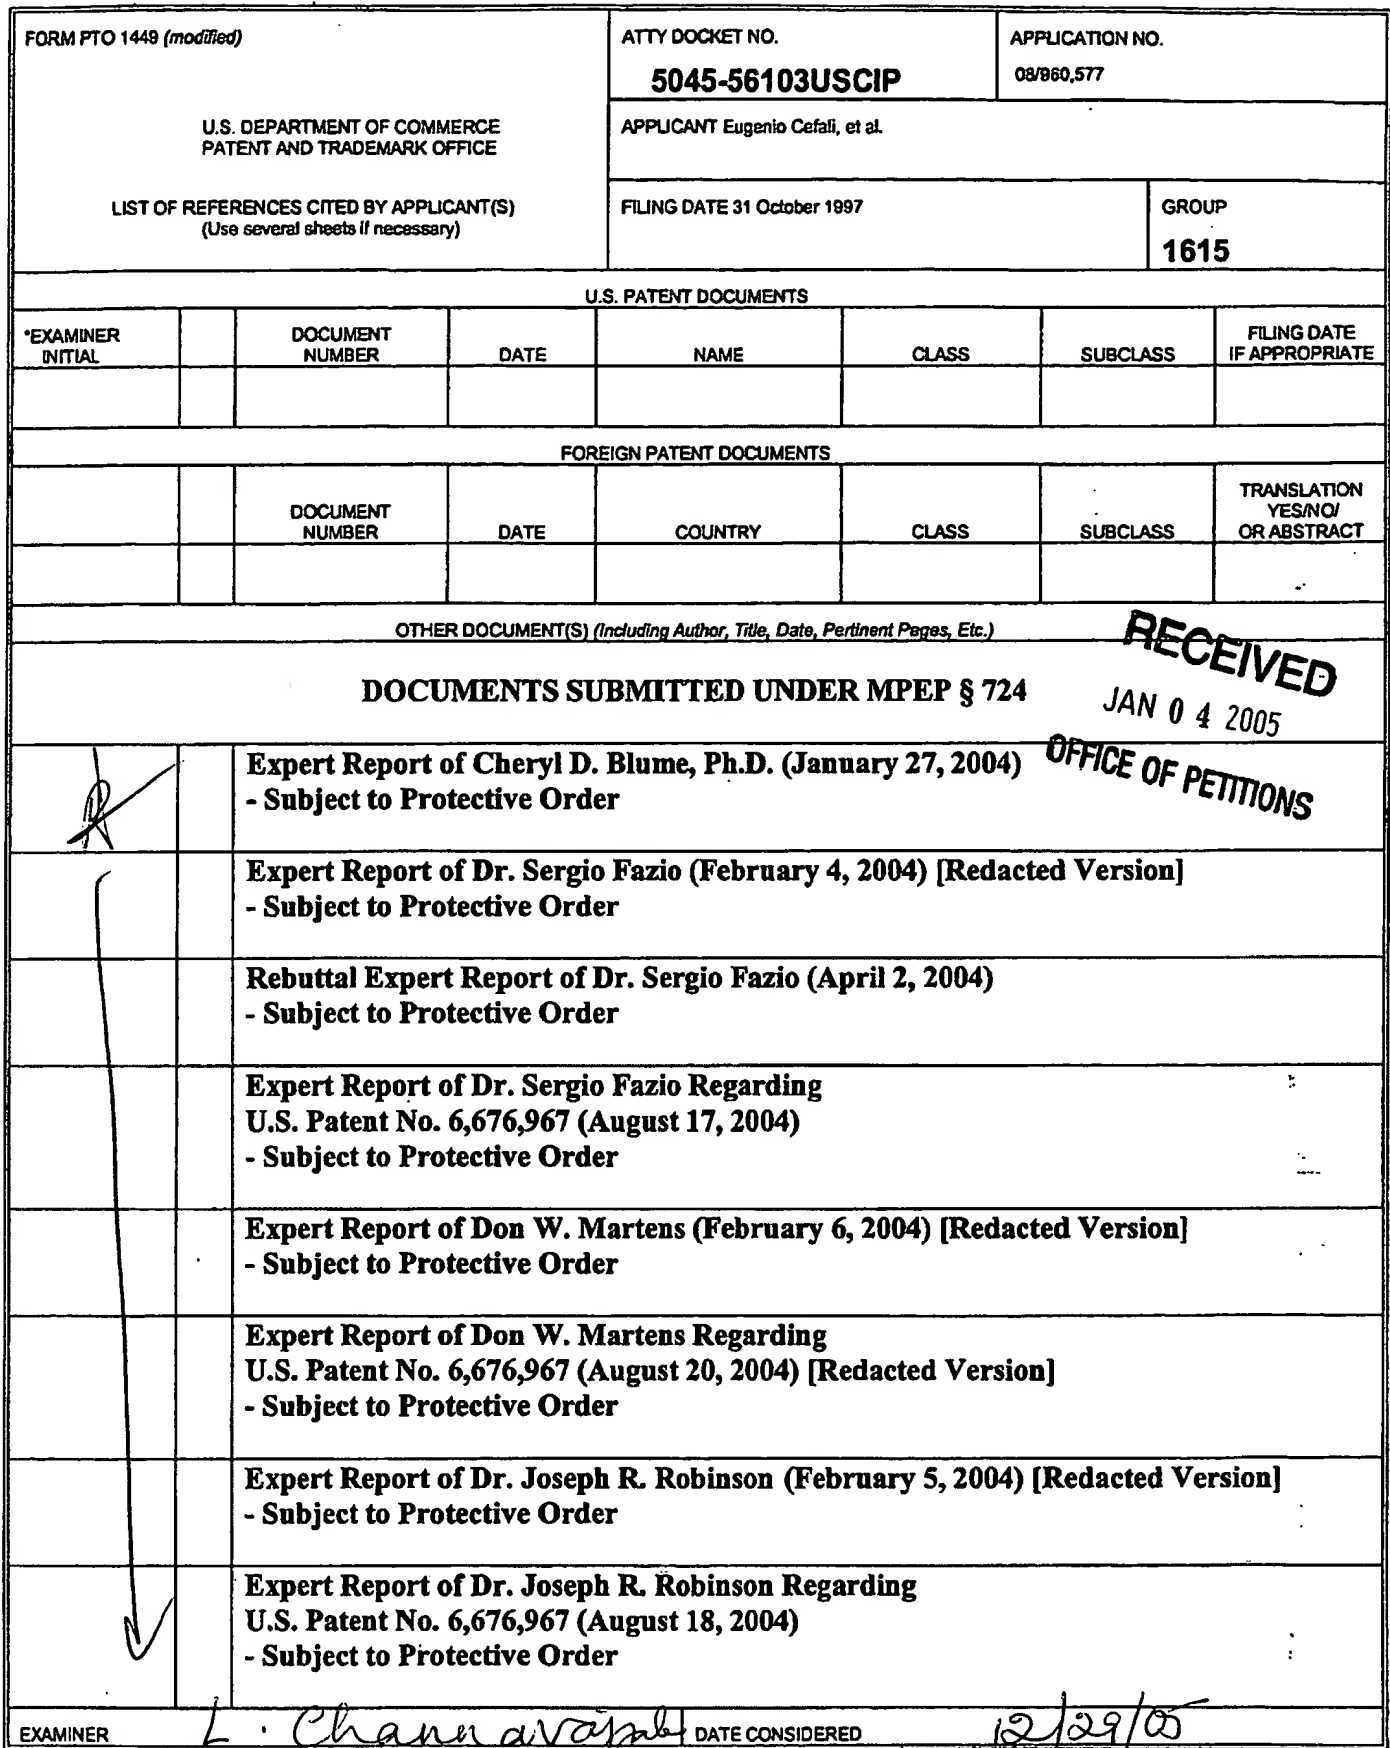 FORM PTO 1449 (modified)
ATTY DOCKET NO.
5045-56103USCIP
APPLICATION NO.
08/960,577
U.S. DEPARTMENT OF COMMERCE
PATENT AND TRADEMARK OFFICE
APPLICANT Eugenio Cefali, et al.
LIST OF REFERENCES CITED BY APPLICANT(S)
(Use several sheets if necessary)
FILING DATE 31 October 1997
GROUP
1615
U.S. PATENT DOCUMENTS
*EXAMINER
INITIAL
DOCUMENT
NUMBER
DATE
NAME
CLASS
SUBCLASS
FILING DATE
IF APPROPRIATE
FOREIGN PATENT DOCUMENTS
DOCUMENT
NUMBER
DATE
COUNTRY
CLASS
SUBCLASS
TRANSLATION
YES/NO/
OR ABSTRACT
OTHER DOCUMENT(S) (Including Author, Title, Date, Pertinent Pages, Etc.)
RECEIVED
JAN 04 2005
OFFICE OF PETITIONS
DOCUMENTS SUBMITTED UNDER MPEP § 724
Expert Report of Cheryl D. Blume, Ph.D. (January 27, 2004)
- Subject to Protective Order
Expert Report of Dr. Sergio Fazio (February 4, 2004) [Redacted Version]
- Subject to Protective Order
Rebuttal Expert Report of Dr. Sergio Fazio (April 2, 2004)
- Subject to Protective Order
Expert Report of Dr. Sergio Fazio Regarding
U.S. Patent No. 6,676,967 (August 17, 2004)
- Subject to Protective Order
Expert Report of Don W. Martens (February 6, 2004) [Redacted Version]
- Subject to Protective Order
Expert Report of Don W. Martens Regarding
U.S. Patent No. 6,676,967 (August 20, 2004) [Redacted Version]
- Subject to Protective Order
Expert Report of Dr. Joseph R. Robinson (February 5, 2004) [Redacted Version]
- Subject to Protective Order
Expert Report of Dr. Joseph R. Robinson Regarding
U.S. Patent No. 6,676,967 (August 18, 2004)
- Subject to Protective Order
EXAMINER L.
DATE CONSIDERED 12/29/05